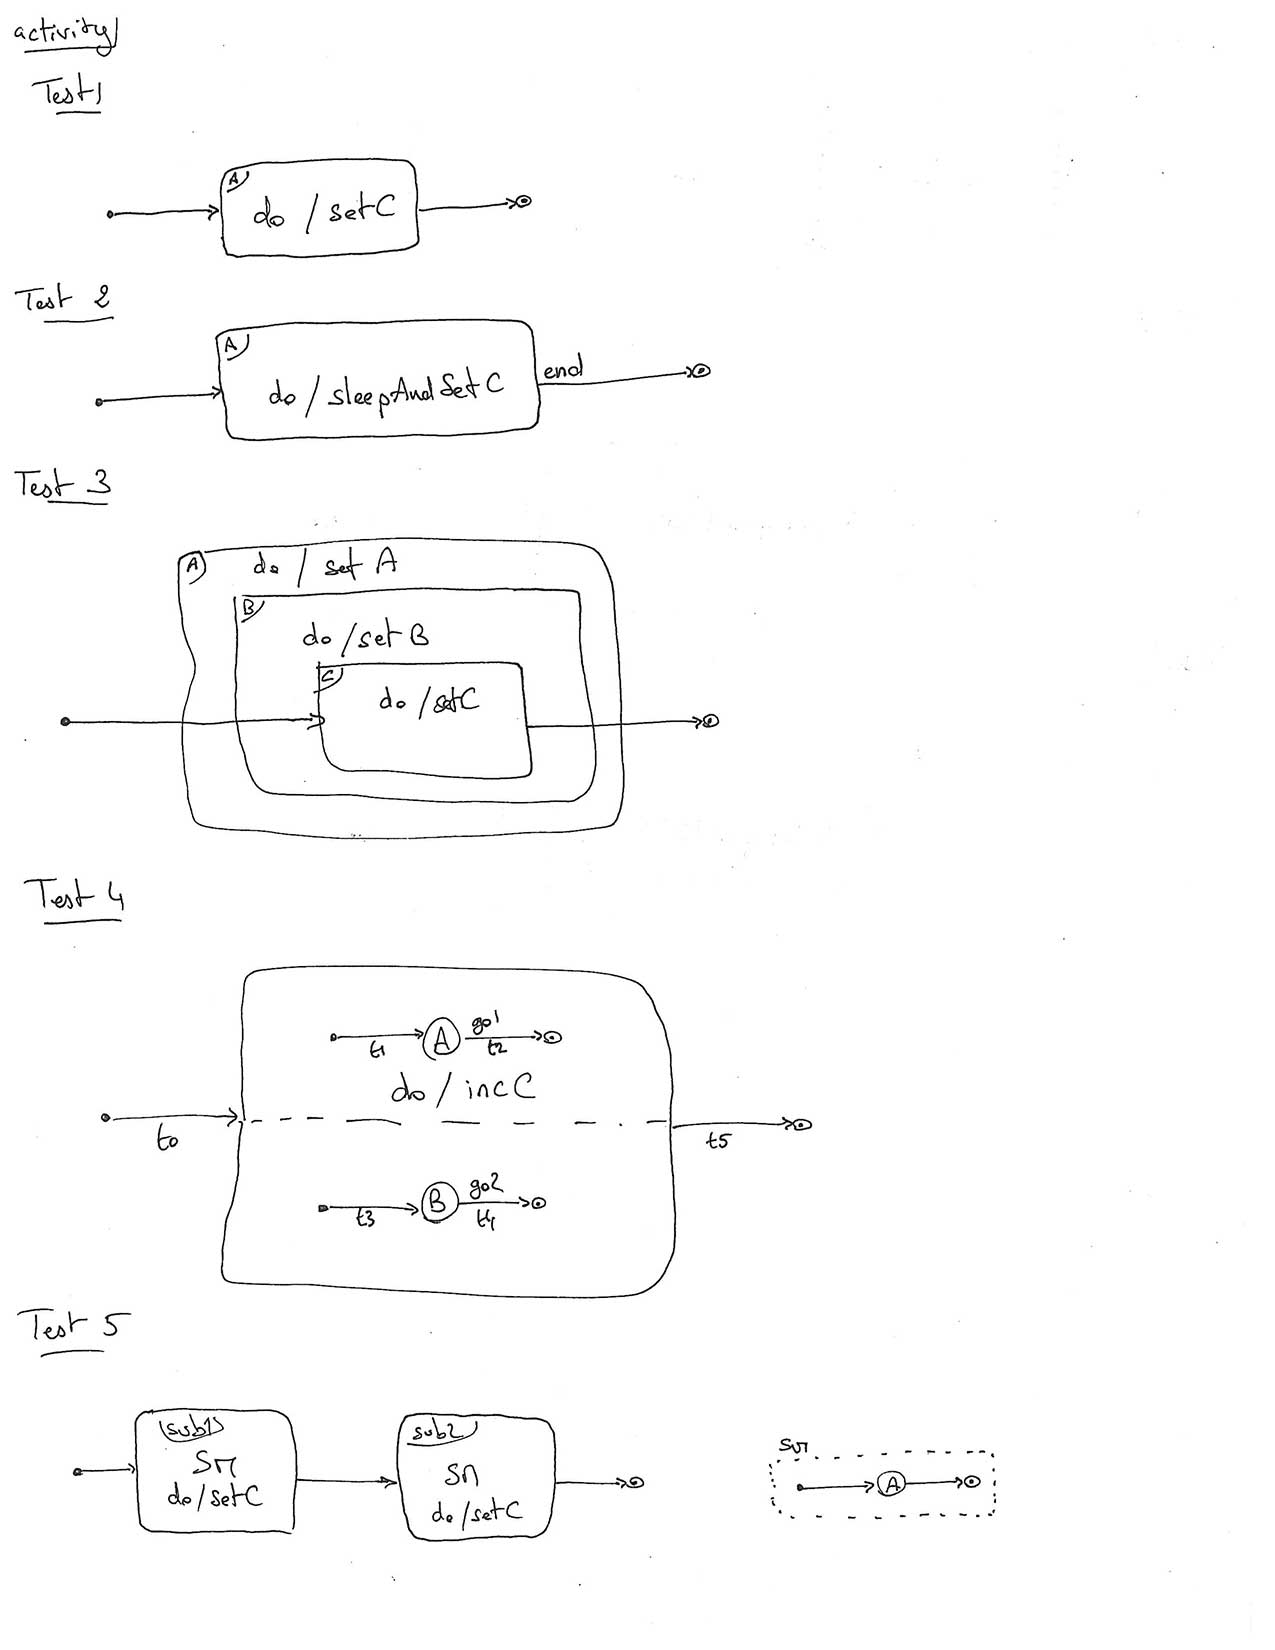 activity
Test1
A
do / setC
Test 2
A
do / sleepAndSetC
end
Test 3
A
do / set A
B
do / set B
C
do / setC
Test 4
go1
A
t1
t2
do / incC
t0
t5
go2
B
t3
t4
Test 5
sub1
SM
do/setC
sub2
SM
do/setC
SM
A